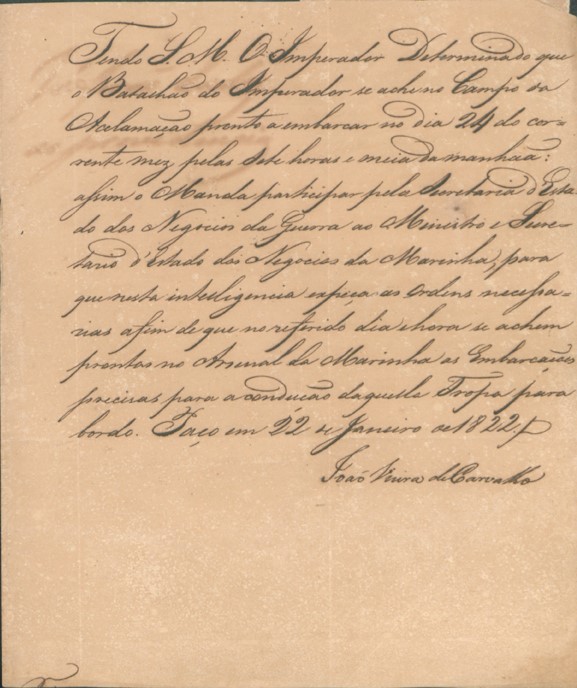 Tendo S. M. O Imperador Determinado que
o Batachão do Imperador se ache no Campo da
Aclamação prompto a embarcar no dia 24 do cor=
rente mez pelas Sete horas e meia da manhaã:
assim o Manda participar pela Secretaria d'Esta
do dos Negocios da Guerra ao Ministro e Secre=
tario d'Estado dos Negocios da Marinha, para
que nesta intelligencia expeça as ordens necessa=
rias afim de que no referido dia e hora se achem
promtas no Arsenal da Marinha as Embarcações
precisas para a condução daquella Tropa para
bordo. Paço em 22 de Janeiro de 1822.
João Vieira de Carvalho